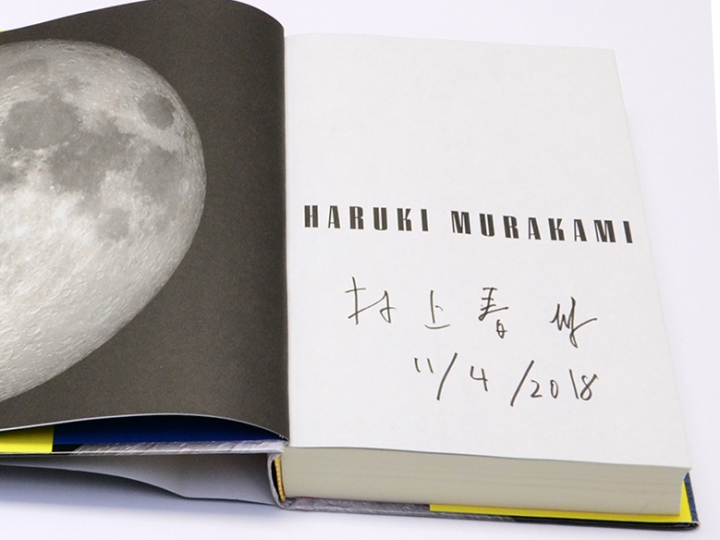 HARUKI MURAKAMI
村上春樹
11/4/2018